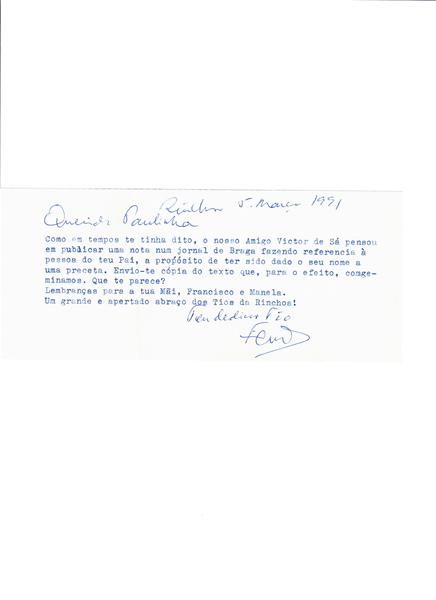 5. Março 1991
Querida Paulinha
Como em tempos te tinha dito, o nosso Amigo Victor de Sá pensou
em publicar uma nota num jornal de Braga fazendo referencia à
pessoa do teu Pai, a propósito de ter sido dado o seu nome a
uma preceta. Envio-te cópia do texto que, para o efeito, comge-
minamos. Que te parece?
Lembranças para a tua Mãi, Francisco e Manela.
Um grande e apertado abraço dos Tios da Rinchoa!
Tio